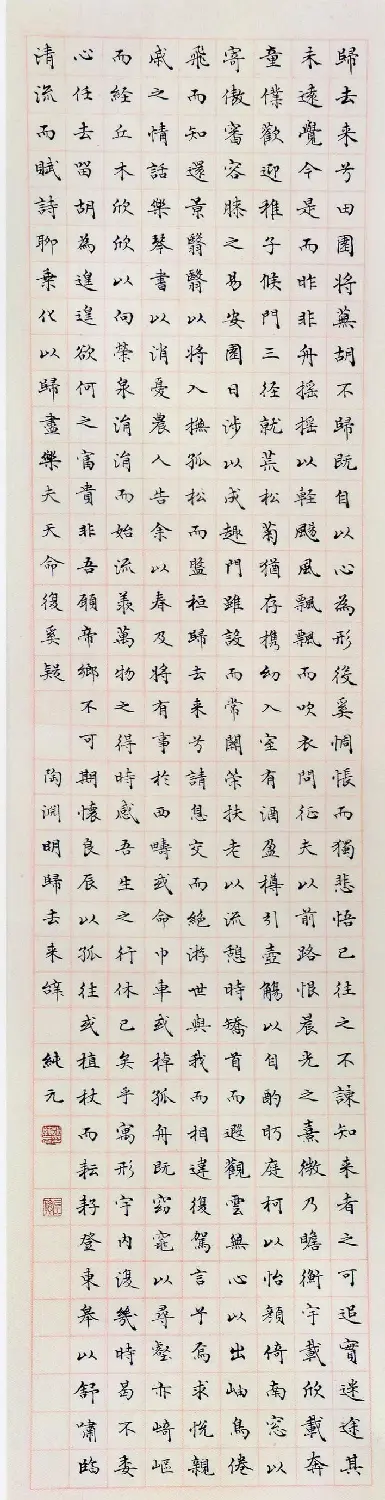 歸去来兮田園将蕪胡不歸既自以心為形役奚惆悵而獨悲悟已往之不諫知来者之可追實迷途其
未遠覺今是而昨非舟摇摇以軽颺風飄飄而吹衣問征夫以前路恨晨光之熹微乃瞻衡宇載欣載奔
童僕歡迎稚子候門三径就荒松菊猶存携幼入室有酒盈樽引壺觴以自酌眄庭柯以怡顔倚南窓以
寄傲審容膝之易安園日涉以成趣門雖設而常關策扶老以流憩時矯首而遐觀雲無心以出岫鳥倦
飛而知還景翳翳以将入撫孤松而盤桓歸去来兮請息交而絶游世與我而相違復駕言兮焉求悦親
戚之情話樂琴書以消憂農人告余以春及将有事於西疇或命巾車或棹孤舟既窈窕以尋壑亦崎嶇
而経丘木欣欣以向榮泉涓涓而始流羨萬物之得時感吾生之行休已矣乎寓形宇内復幾時曷不委
心任去留胡為遑遑欲何之富貴非吾願帝鄉不可期懷良辰以孤往或植杖而耘耔登東皋以舒嘯臨
清流而賦詩聊乗化以歸盡樂夫天命復奚疑 陶淵明歸去来辭 純元